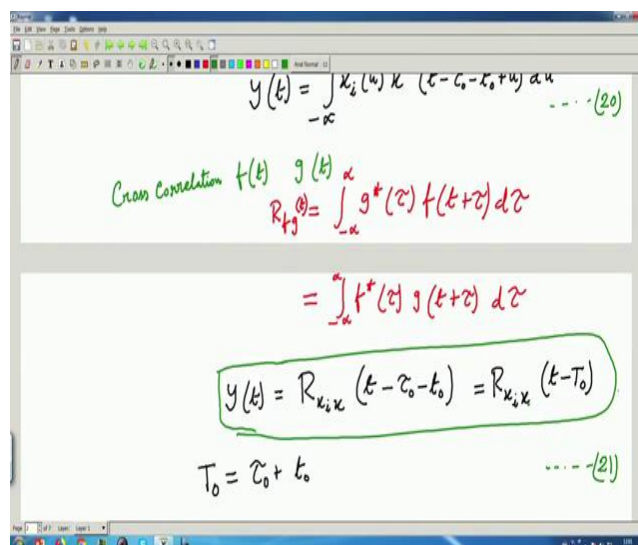 File Edit View Page Tools Options Help
y(t) = ∫_{-α} x_i(u) x (t-τ₀-t₀+u) du
-----(20)
Cross Correlation f(t) g(t)
R_{fg}(t) = ∫_{-α}^{α} g*(τ) f(t+τ) dτ
= ∫_{-α}^{α} f*(τ) g(t+τ) dτ
y(t) = R_{x_i x} (t-τ₀-t₀) = R_{x_i x_i} (t-T₀)
T₀ = τ₀ + t₀
-----(21)